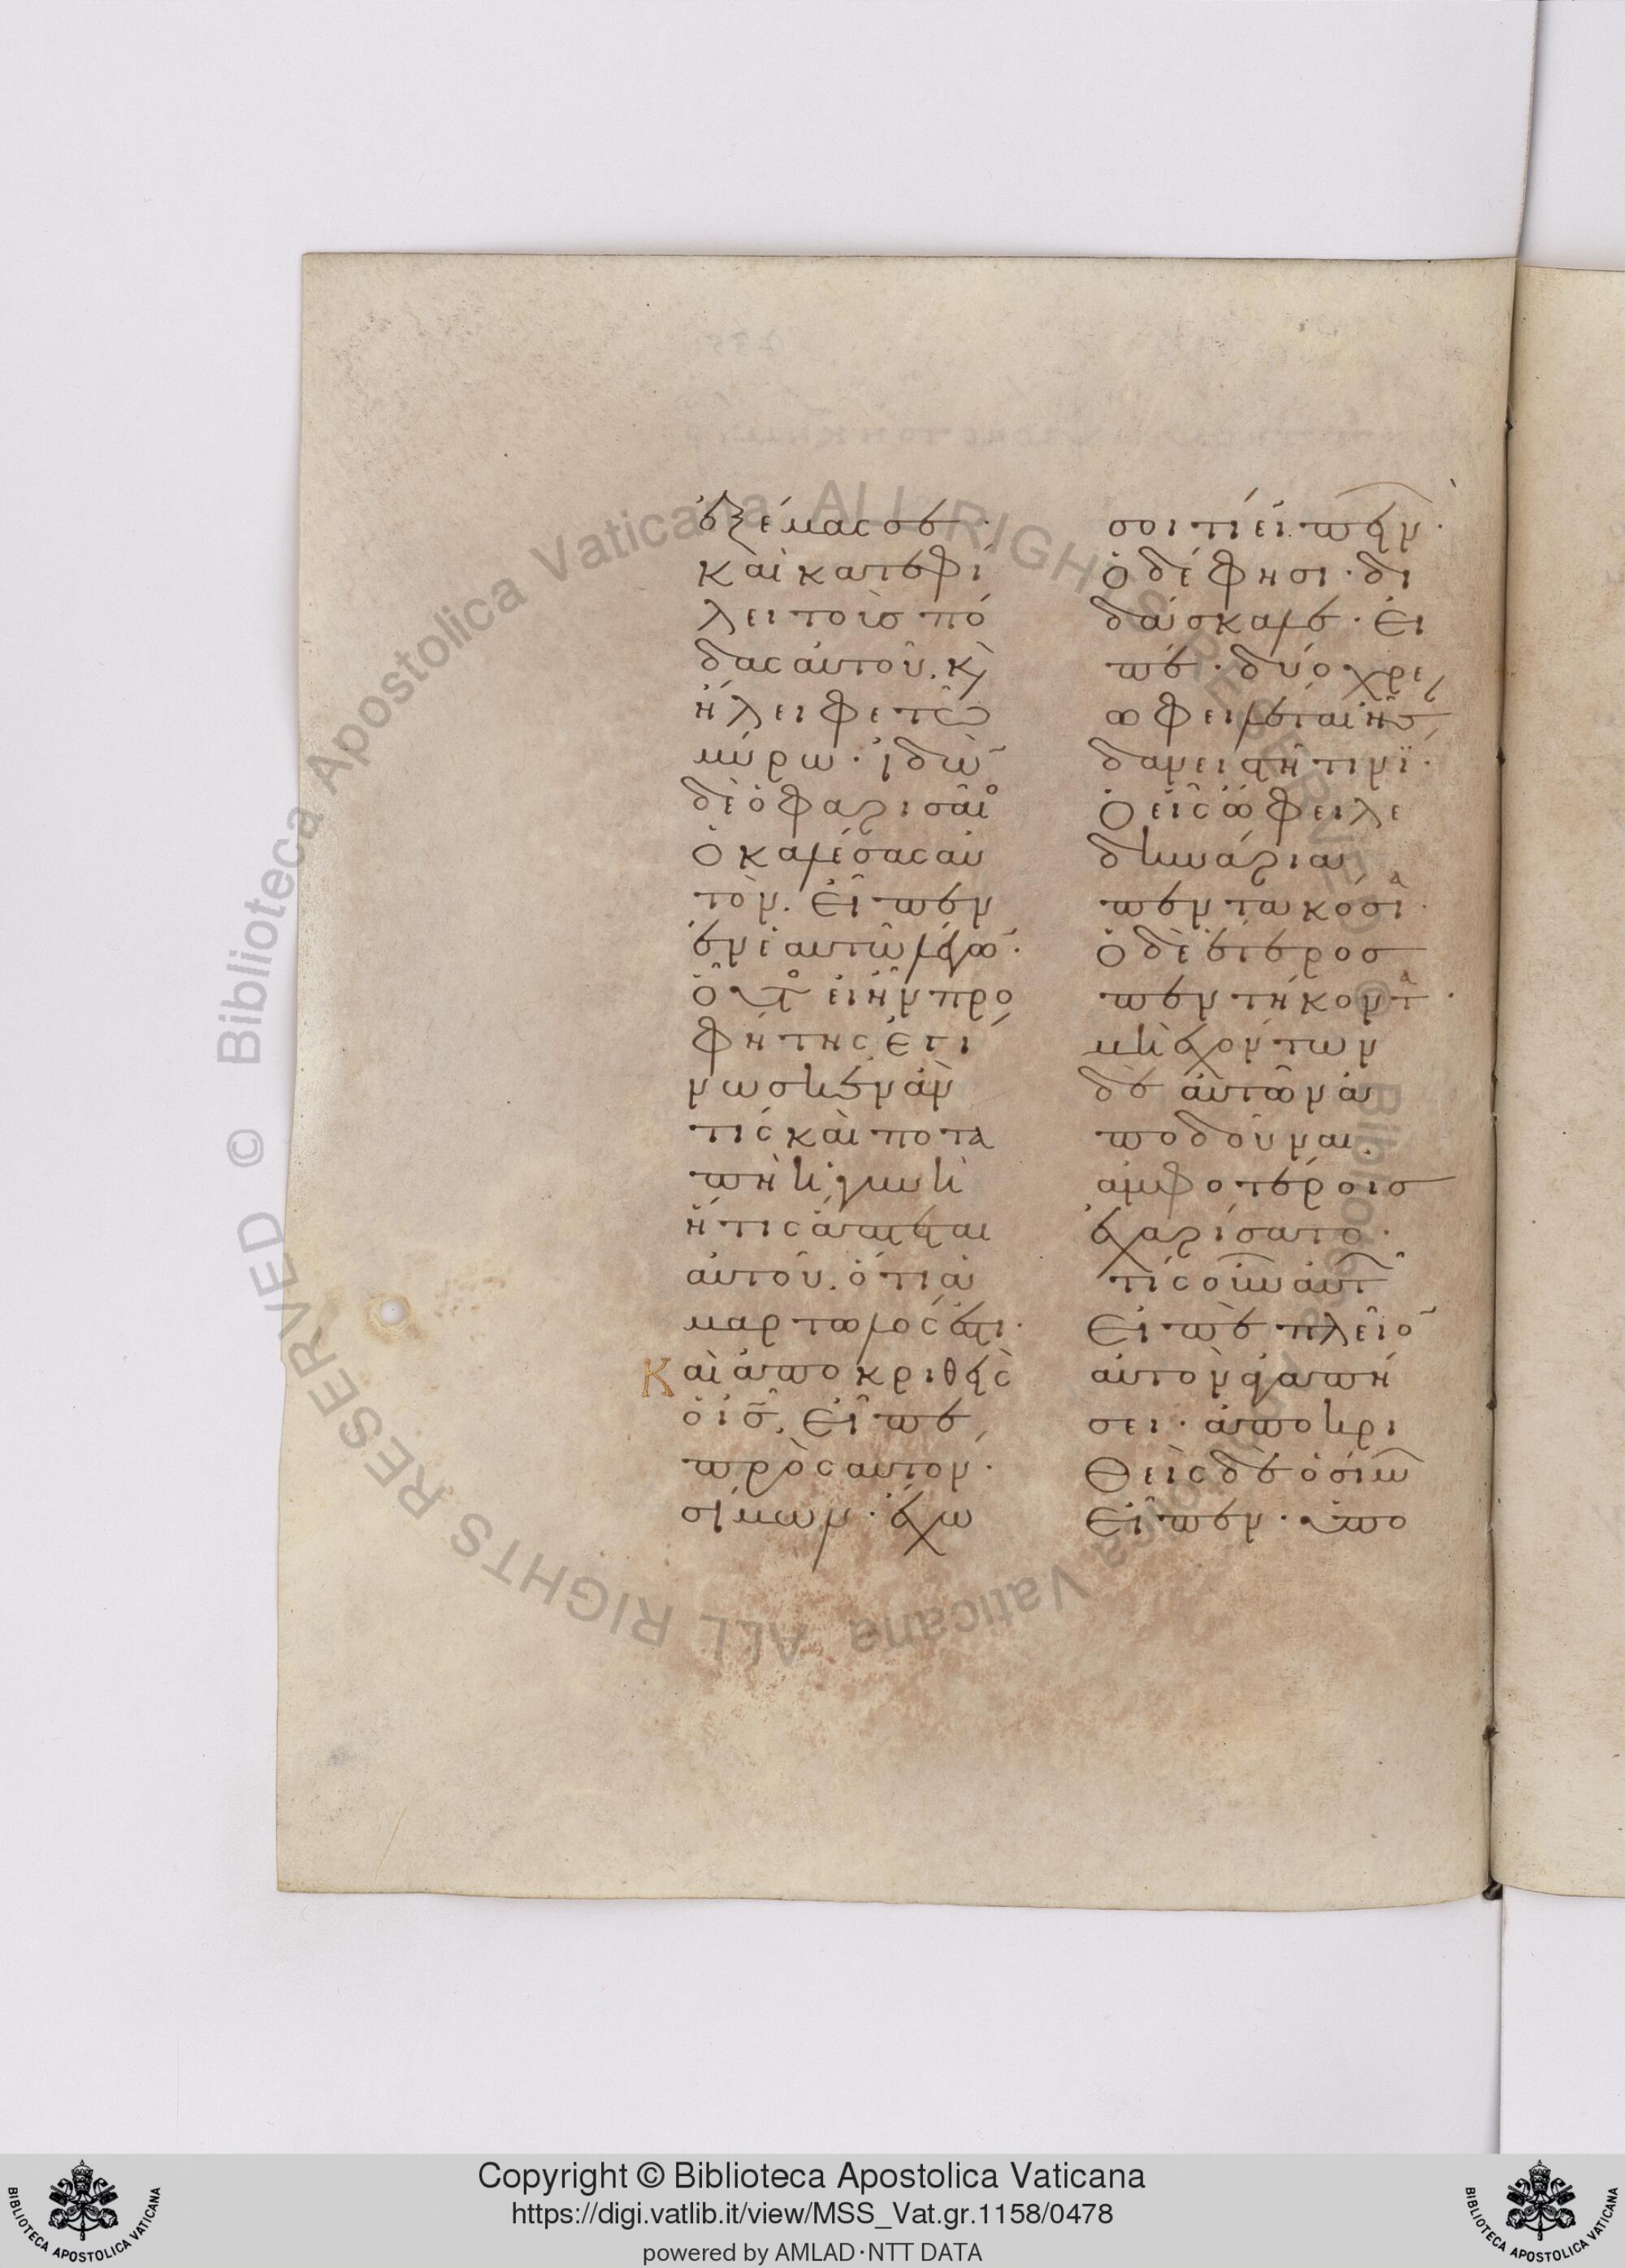 ἐξέμασσε·
καὶ κατεφί
λει τοὺσ πό
δας αὐτοῦ. κ(αὶ)
ἤλειφε τῶ
μύρω· ἰδὼ̅
δὲ ὁ φαρισαῖο
ὁ καλέσας αὐ
τὸν. εἶπεν
ἐν ἑαυτῶ λέγω̅·
οὗτ εἰ ἦν προ
φήτης ἐγί
νωσκεν ἂν
τίς καὶ ποτα
πὴ ἡ γυνὴ
ἥτις ἅπτεται
αὐτοῦ. ὅτι ἁ
μαρτωλός ἐστι·
Καὶ ἀποκριθεὶς
ὁ ι̅σ̅. εἶπε
πρὸς αυτον·
σίμων· ἔχω
σοι τί εἰπεῖν·
ὁ δέ φησι· δι
δάσκαλε· εἰ
πέ· δύο χρε
ωφειλέται ἦσ
δανειστῆ τινϊ·
ὁ εἷς ὤφειλε
δηνάρια
πεντακόσια·
ὁ δὲ ἕτερος
πεντήκοντα·
μὴ ἐχόντων
δὲ αὐτῶν ἀ
ποδοῦναι.
ἀμφοτέροισ
ἐχαρίσατο·
τίς οὖν αὐτῶ
εἰπὲ πλεῖο̅
αὐτὸν ἀγαπή
σει· ἀποκρι
θεὶς δὲ ὁ σίμω
εἶπεν· ὑπο
Copyright © Biblioteca Apostolica Vaticana
https://digi.vatlib.it/view/MSS_Vat.gr.1158/0478
powered by AMLAD·NTT DATA
BIBLIOTECA APOSTOLICA VATICANA
BIBLIOTECA APOSTOLICA VATICANA
© Biblioteca Apostolica Vaticana ALL RIGHTS RESERVED
© Biblioteca Apostolica Vaticana ALL RIGHTS RESERVED